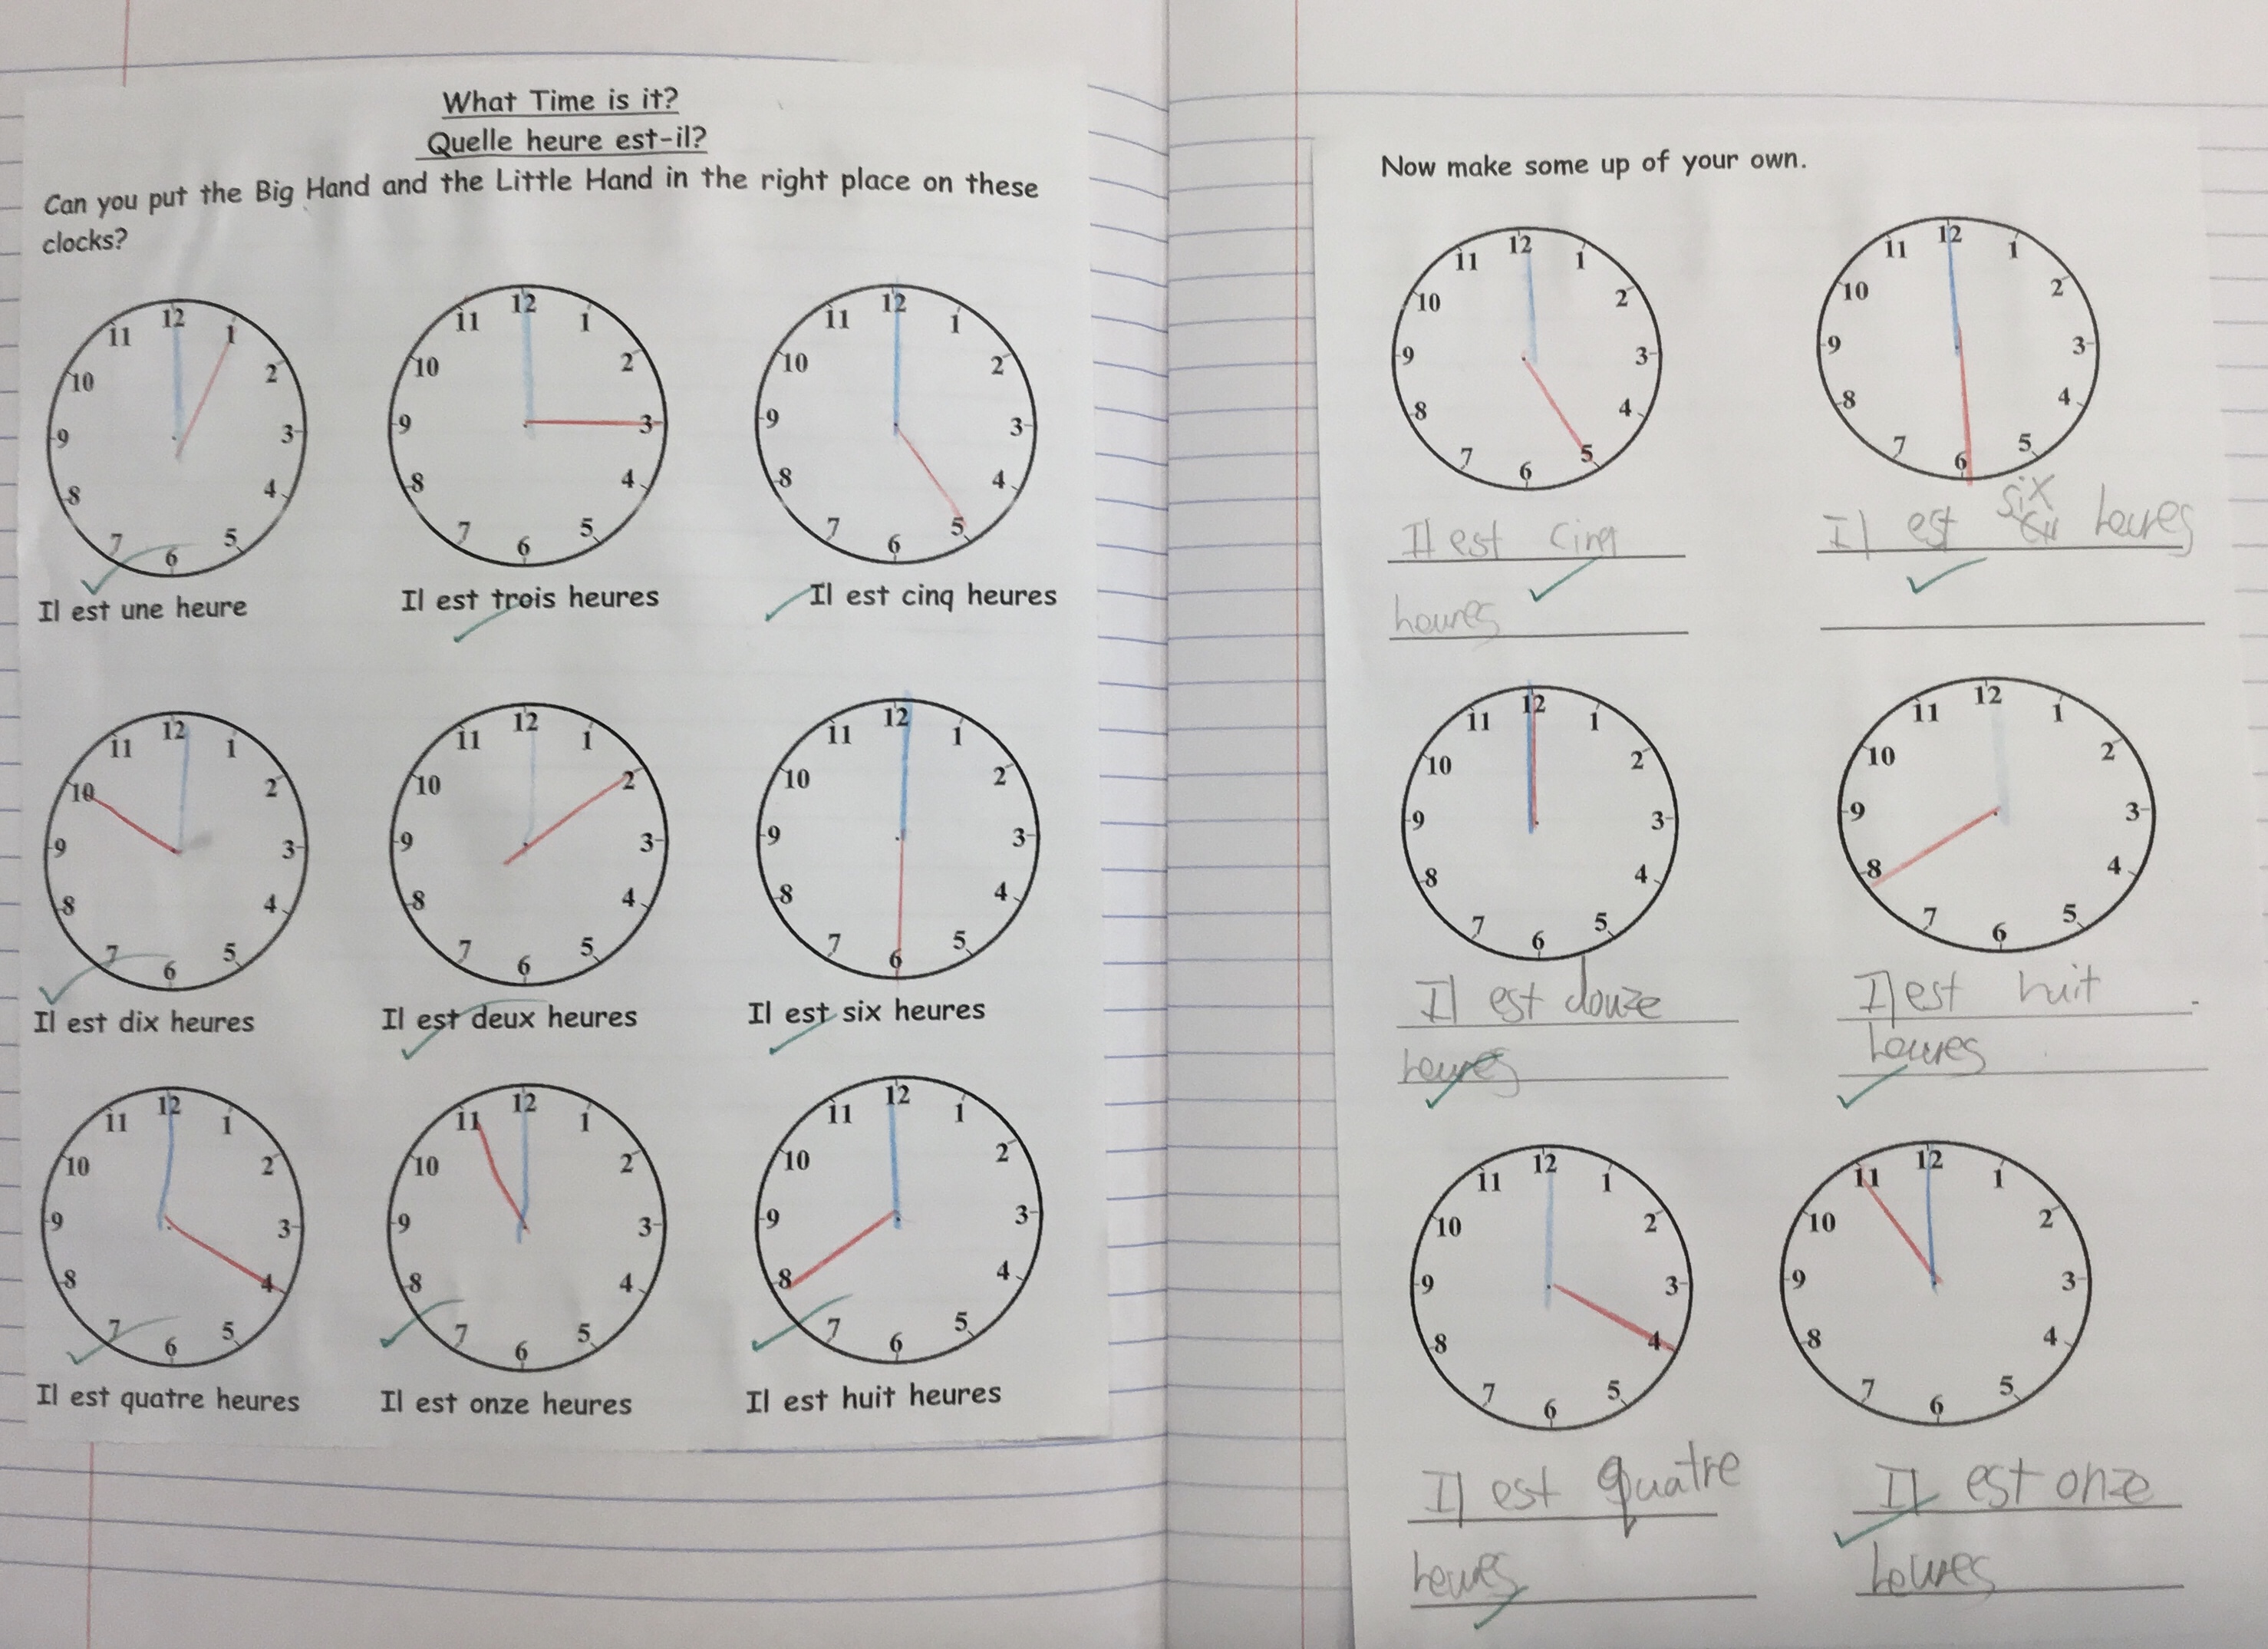 What Time is it?
Quelle heure est-il?
Can you put the Big Hand and the Little Hand in the right place on these
clocks?
12 1 2 3 4 5 6 7 8 9 10 11
Il est une heure
12 1 2 3 4 5 6 7 8 9 10 11
Il est trois heures
12 1 2 3 4 5 6 7 8 9 10 11
Il est cinq heures
12 1 2 3 4 5 6 7 8 9 10 11
Il est dix heures
12 1 2 3 4 5 6 7 8 9 10 11
Il est deux heures
12 1 2 3 4 5 6 7 8 9 10 11
Il est six heures
12 1 2 3 4 5 6 7 8 9 10 11
Il est quatre heures
12 1 2 3 4 5 6 7 8 9 10 11
Il est onze heures
12 1 2 3 4 5 6 7 8 9 10 11
Il est huit heures
Now make some up of your own.
12 1 2 3 4 5 6 7 8 9 10 11
Il est cinq
heures
12 1 2 3 4 5 6 7 8 9 10 11
Il est six heures
12 1 2 3 4 5 6 7 8 9 10 11
Il est douze
heures
12 1 2 3 4 5 6 7 8 9 10 11
Il est huit
heures
12 1 2 3 4 5 6 7 8 9 10 11
Il est quatre
heures
12 1 2 3 4 5 6 7 8 9 10 11
Il est onze
heures